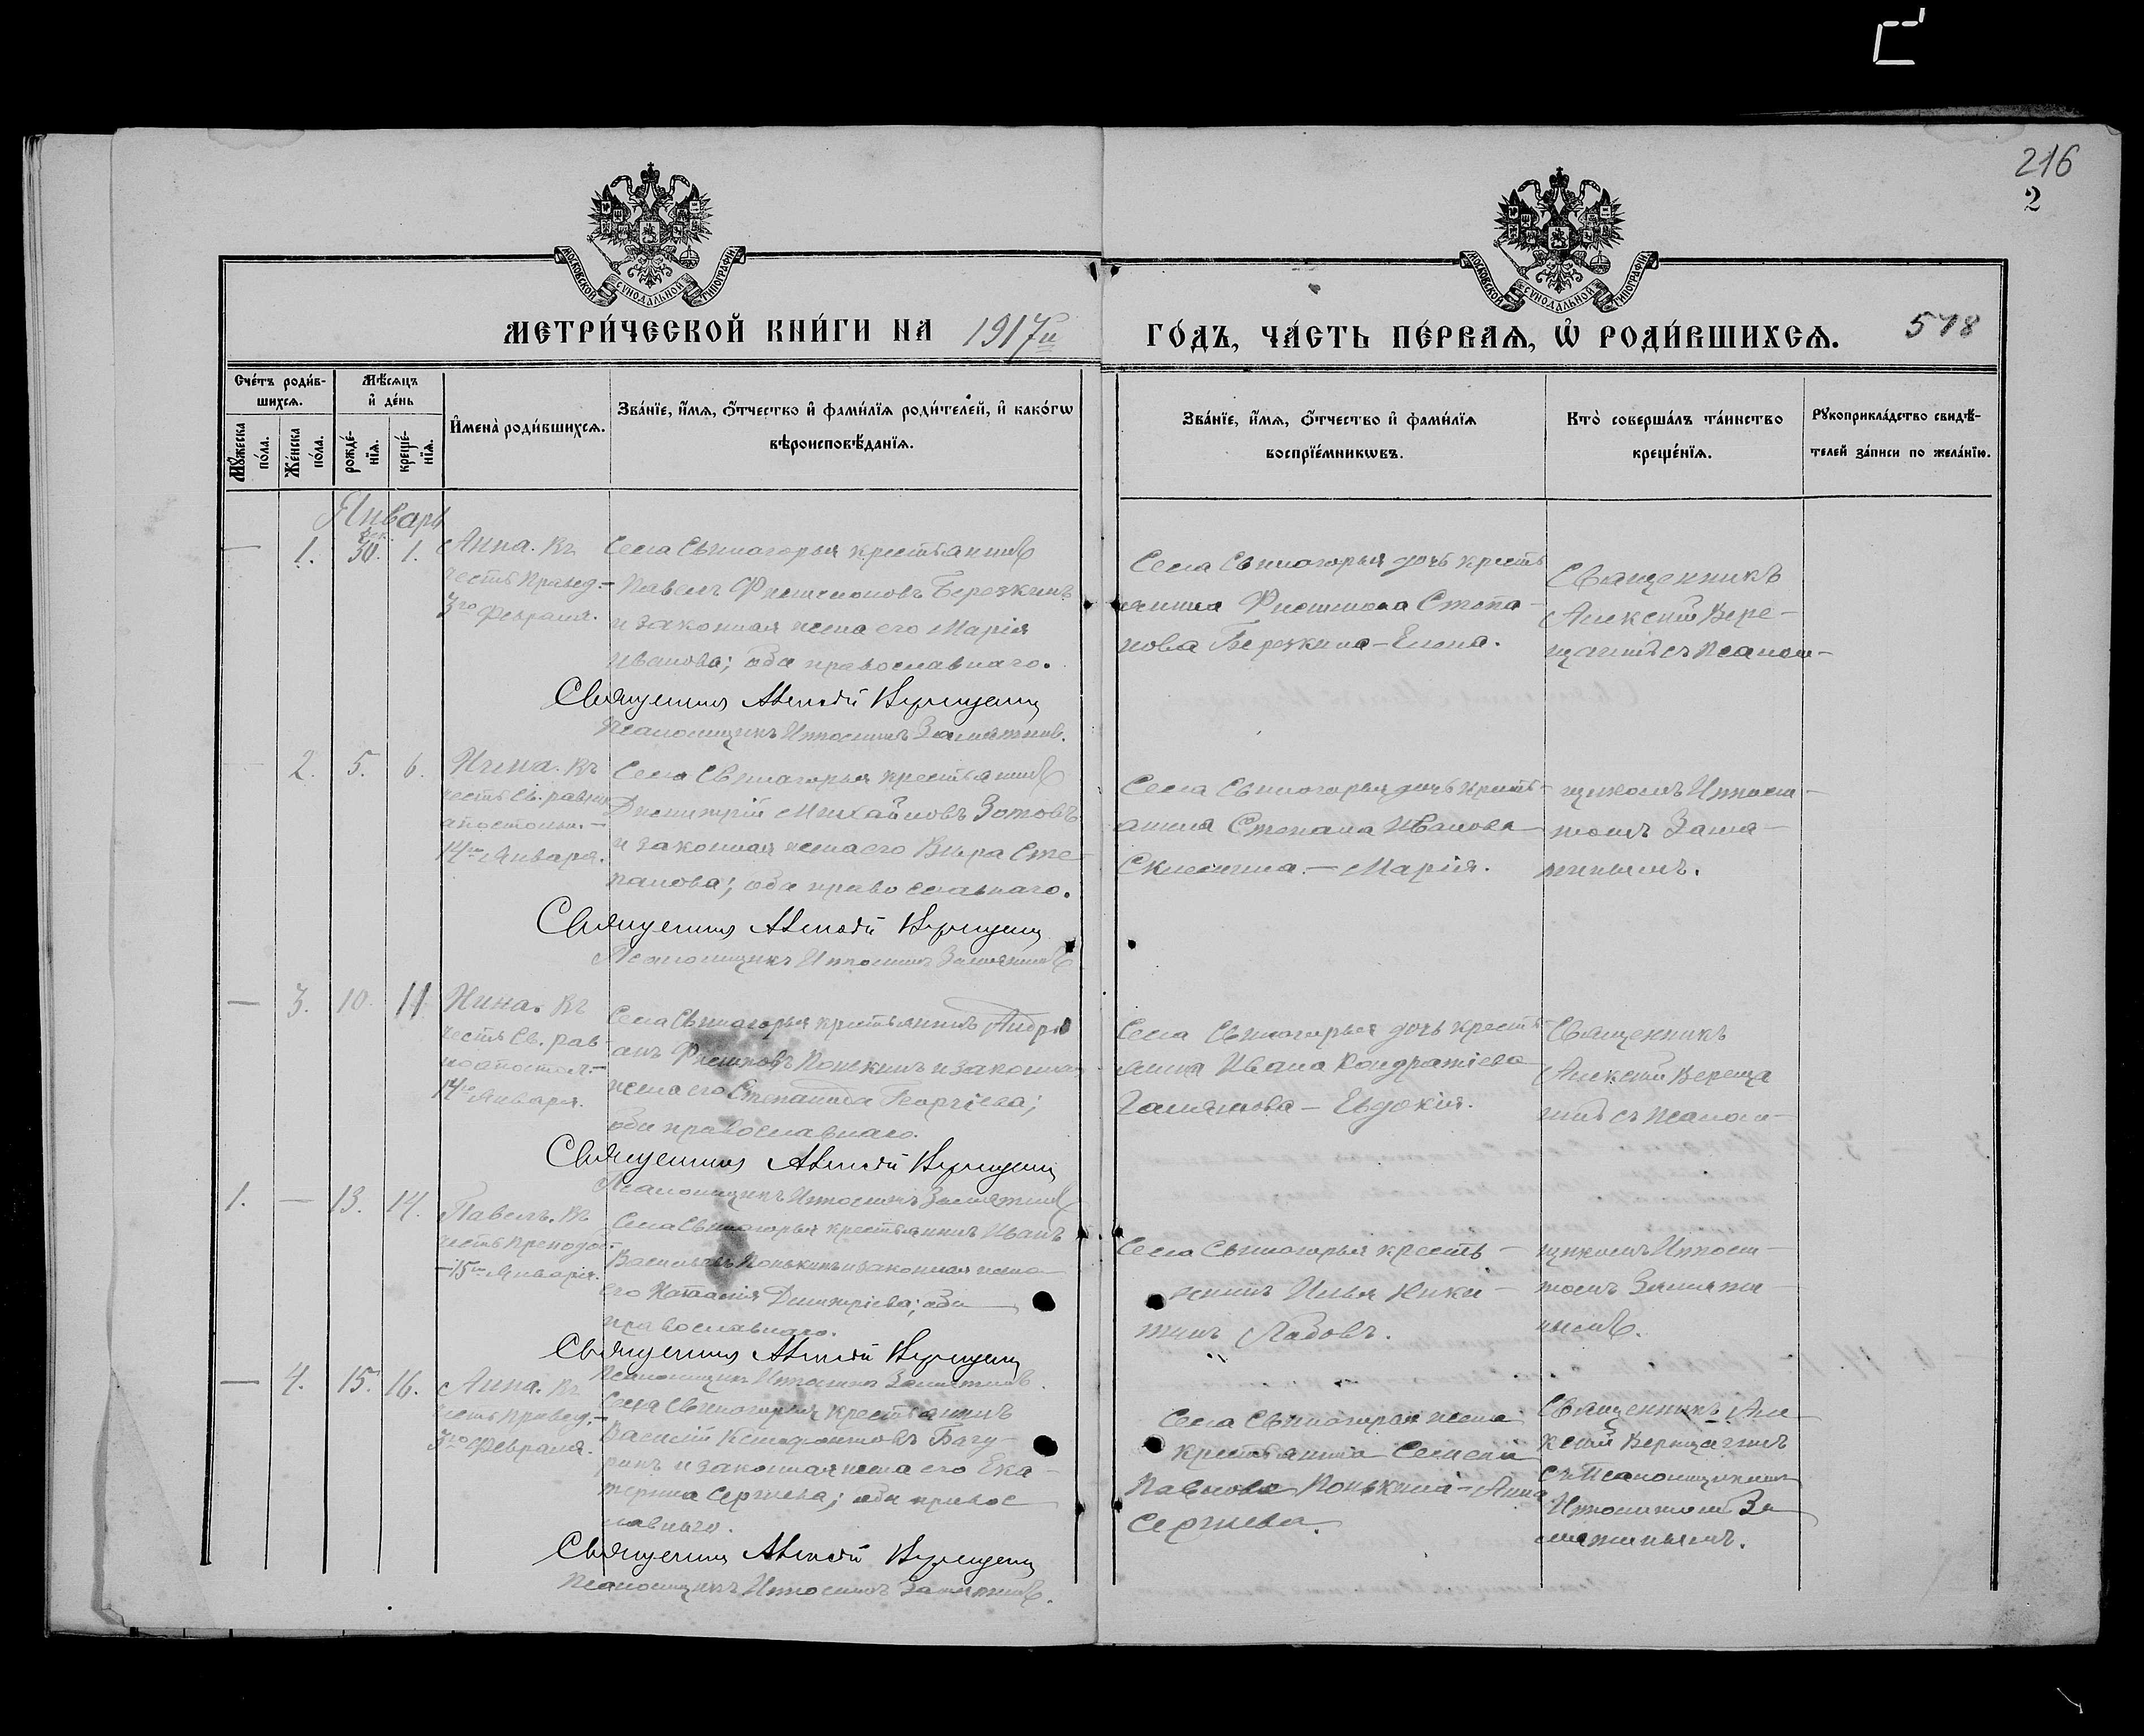 216
2
МОСКОВСКОЙ СУНОДАЛЬНОЙ ТИПОГРАФІИ
МОСКОВСКОЙ СУНОДАЛЬНОЙ ТИПОГРАФІИ
МЕТРИ́ЧЕСКОЙ КНИ́ГИ НА 1917й
ГО́ДЪ, ЧА́СТЬ ПЕ́РВАѦ, Ѡ҆ РОДИ́ВШИХСѦ.
578
Счéтъ роди́в-
шихсѧ.
Мѣ́сѧцъ
и҆ де́нь
Мꙋ́жеска по́ла.
Же́нска по́ла.
рожде́-
нїѧ.
креще́-
нїѧ.
И҆мена̀ роди́вшихсѧ.
Зва́нїе, и҆́мѧ, ѻ҆́тчество и҆ фами́лїѧ роди́телей, и҆ како́гѡ
вѣроисповѣ́данїѧ.
Зва́нїе, и҆́мѧ, ѻ҆́тчество и҆ фами́лїѧ
воспрїе́мникѡвъ.
Кто̀ соверша́лъ та́инство
креще́нїѧ.
Рꙋкоприкла́дство свидѣ́-
телей за́писи по жела́нїю.
Январь
— 1. 30. 1.
Анна. Въ
честь Правед.-
3го Февраля.
Села Свиногорья крестьянинъ
Павелъ Филимоновъ Березкинъ
и законная жена его Марія
Иванова; оба православнаго.
Священникъ Алексій Верещагин
Псаломщикъ Ипполитъ Замятнинъ.
Села Свиногорья дочь кресть
янина Филимона Степа-
нова Березкина - Елена.
Священникъ
Алексій Вере-
щагинъ съ псалом-
2. 5. 6.
Нина. Въ
честь Св. равно
апостольн.-
14го Января.
Села Свиногорья крестьянинъ
Димитрій Михайловъ Зотовъ
и законная жена его Вѣра Сте-
панова; оба православнаго.
Священникъ Алексій Верещагин
Псаломщикъ Ипполитъ Замятнинъ
Села Свиногорья дочь кресть-
янина Степана Иванова
— Марія.
щикомъ Иппол-
томъ Замя-
тнинымъ.
— 3. 10. 11
Нина. Въ
честь Св. рав-
ноапостол.-
14го Января.
Села Свиногорья крестьянинъ Андрі
анъ Понькинъ и законная
жена его Степанида Георгіева;
оба православнаго.
Священникъ Алексій Верещагин
Псаломщикъ Ипполитъ Замятнинъ
Села Свиногорья дочь кресть
янина Ивана Кондратіева
— Евдокія.
Священникъ
Алексій Вереща
гинъ съ псалом-
1. — 13. 14.
Павелъ. Въ
честь преподоб.
— 15го Января.
Села Свиногорья крестьянинъ Иванъ
Васильевъ Понькинъ и законная жена
его Наталія Димитріева; оба
православнаго.
Священникъ Алексій Верещагин
Псаломщикъ Ипполитъ Замятнинъ.
Села Свиногорья кресть-
янинъ Илья Ники-
тинъ Лабовъ.
щикомъ Иппол-
томъ Замятн-
нымъ.
— 4. 15. 16.
Анна. Въ
честь правед.-
3го Февраля.
Села Свиногорья крестьянинъ
Василій Ксенофонтовъ Бачу-
ринъ и законная жена его Ека-
терина Сергѣева; оба правос
лавнаго.
Священникъ Алексій Верещагин
Псаломщикъ Ипполитъ Замятнинъ.
Села Свиногорья жена
крестьянина
Павлова Понькина - Анна
Сергѣева.
Священникъ Але
ксій Верещагинъ
съ Псаломщикомъ
Ипполитомъ За
мятнинымъ.